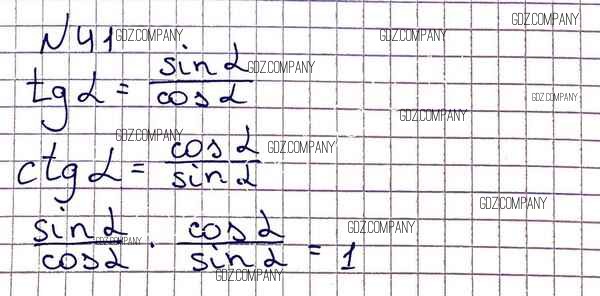 N41
tg α = sin α / cos α
ctg α = cos α / sin α
sin α / cos α · cos α / sin α = 1
GDZ.COMPANY
GDZ.COMPANY
GDZ.COMPANY
GDZ.COMPANY
GDZ.COMPANY
GDZ.COMPANY
GDZ.COMPANY
GDZ.COMPANY
GDZ.COMPANY
GDZ.COMPANY
GDZ.COMPANY
GDZ.COMPANY